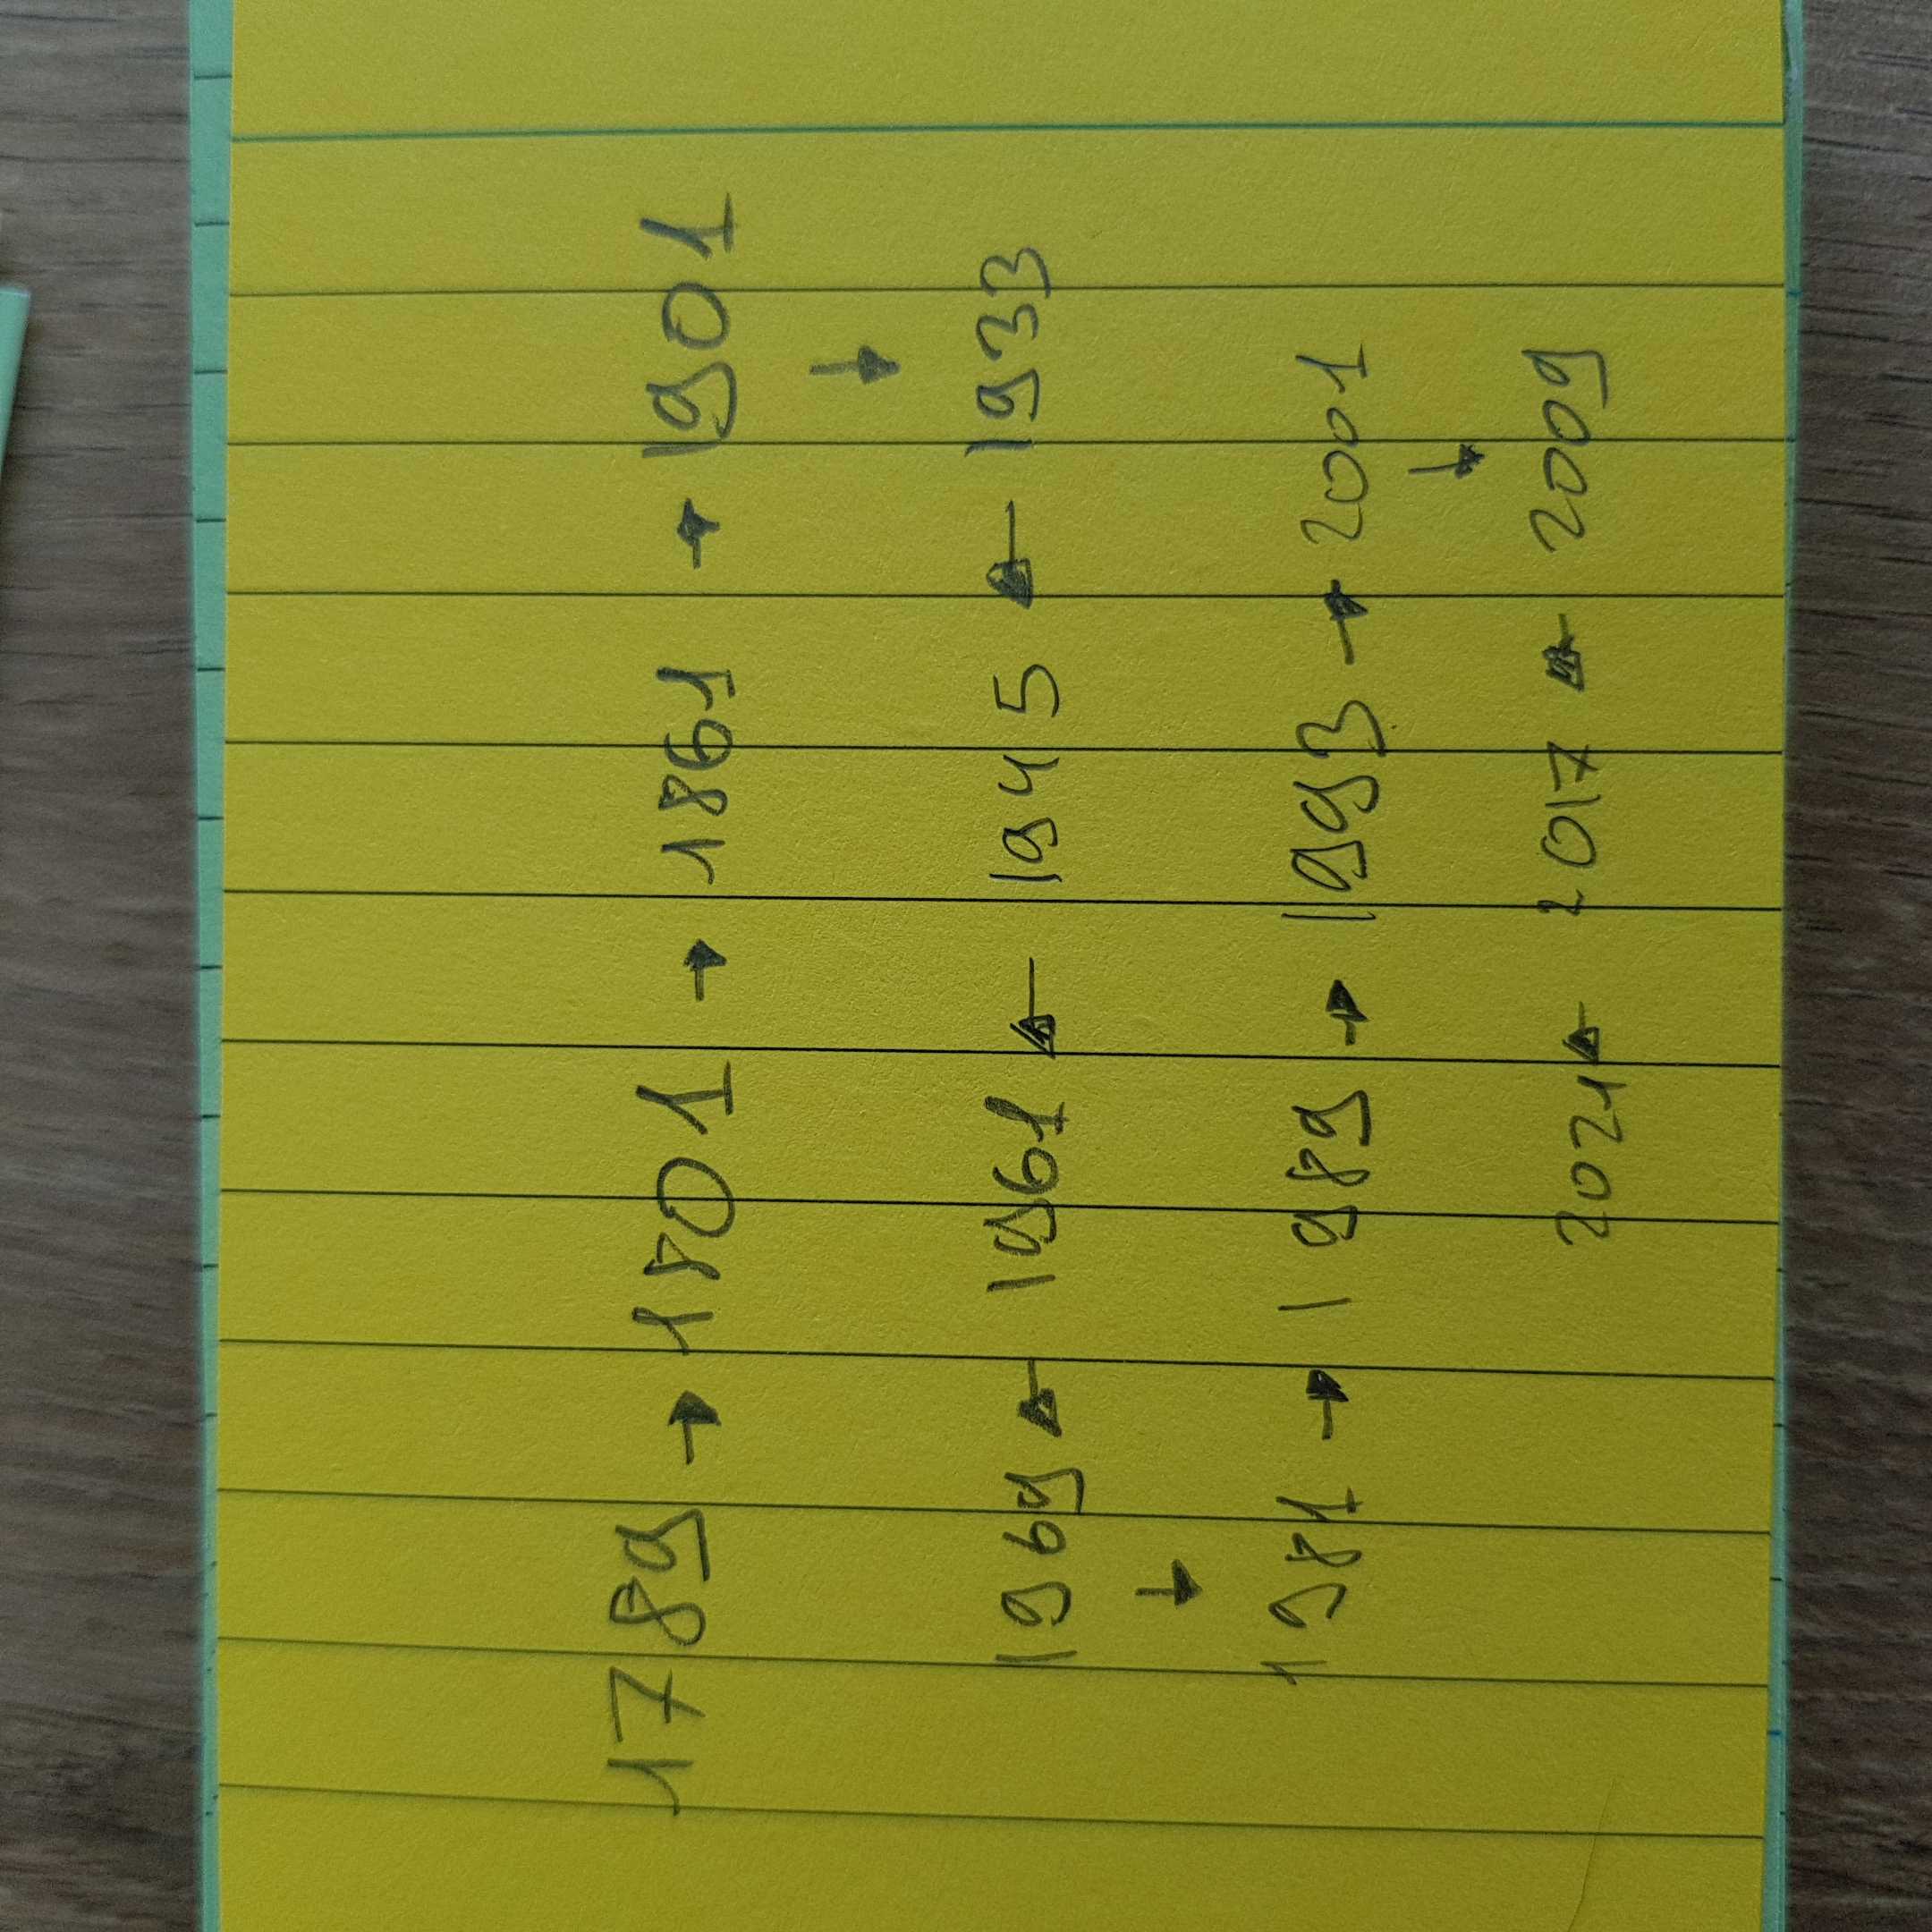 1789 → 1801 → 1861 → 1901
↓
1969 ← 1961 ← 1945 ← 1933
↓
1981 → 1989 → 1993 → 2001
↓
2021 ← 2017 ← 2009